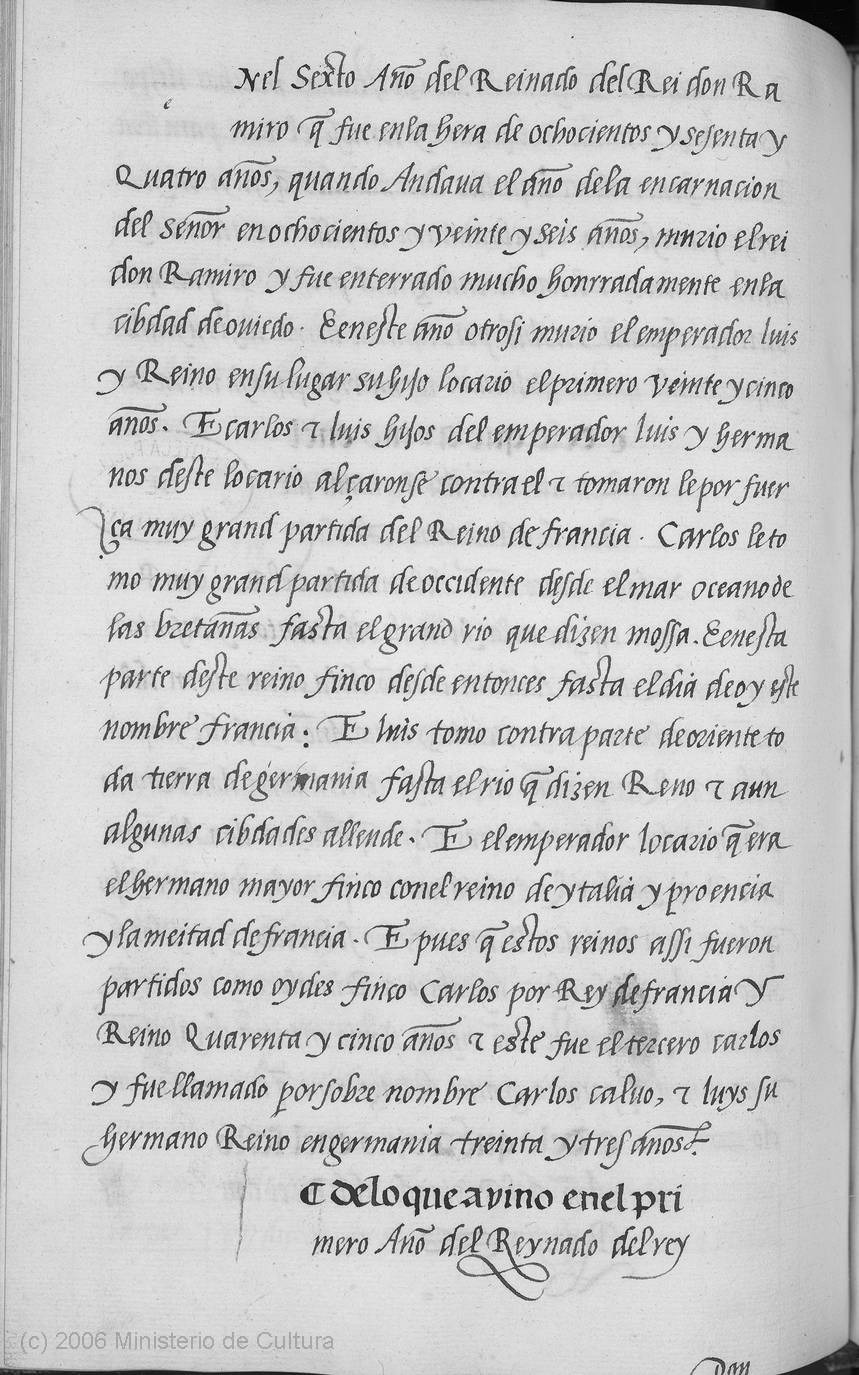 Nel Sexto Año del Reinado del Rei don Ra
e
miro q̃ fue enla hera de ochocientos y sesenta y
Quatro años, quando Andaua el año dela encarnacion
del señor en ochocientos y veinte y seis años, murio el rei
don Ramiro y fue enterrado mucho honrradamente enla
cibdad de ouiedo. Eeneste año otrosi murio el emperador luis
y Reino en su lugar su hijo locario el primero veinte y cinco
años. E carlos τ luis hijos del emperador luis y herma
nos deste locario alçaronse contra el τ tomaron le por fuer
ça muy grand partida del Reino de francia. Carlos le to
mo muy grand partida de occidente desde el mar oceano de
las bretañas fasta el grand rio que dizen mossa. Eenesta
parte deste reino finco desde entonces fasta el dia de oy este
nombre francia: E luis tomo contra parte de oriente to
da tierra de germania fasta el rio q̃ dizen Reno τ aun
algunas cibdades allende. E el emperador locario q̃ era
el hermano mayor finco con el reino de ytalia y proencia
y la meitad de francia. E pues q̃ estos reinos assi fueron
partidos como oydes finco Carlos por Rey de francia Y
Reino Quarenta y cinco años τ este fue el tercero carlos
y fue llamado por sobre nombre Carlos caluo, τ luys su
hermano Reino en germania treinta y tres años.
C de lo que avino en el pri
mero Año del Reynado del rey
Don
(c) 2006 Ministerio de Cultura